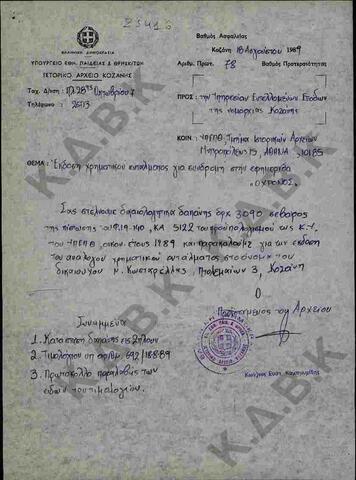 25416
ΕΛΛΗΝΙΚΗ ΔΗΜΟΚΡΑΤΙΑ
ΥΠΟΥΡΓΕΙΟ ΕΘΝ. ΠΑΙΔΕΙΑΣ & ΘΡΗΣΚ/ΤΩΝ
ΙΣΤΟΡΙΚΟ ΑΡΧΕΙΟ ΚΟΖΑΝΗΣ
Ταχ. Δ/νση: Πλ. 28ης Οκτωβρίου 7
Τηλέφωνο: 26113
Βαθμός Ασφαλείας
Κοζάνη 18 Αυγούστου 1989
Αριθμ. Πρωτ. 78 Βαθμός Προτεραιότητας
ΠΡΟΣ: την Υπηρεσίαν Εντελλομένων Εξόδων
της νομαρχίας Κοζάνης
ΚΟΙΝ: ΥΠΕΠΘ Τμήμα Ιστορικών Αρχείων
Μητροπόλεως 15, ΑΘΗΝΑ, 10185
ΘΕΜΑ: Έκδοση χρηματικού εντάλματος για συνδρομή στην εφημερίδα
"Ο ΧΡΟΝΟΣ".
Σας στέλνουμε δικαιολογητικά δαπάνης δρχ 3090 σε βάρος
της πιστώσεως 19-140, ΚΑ 5122 του προϋπολογισμού
του ΥΠΕΠΘ, οικον. έτους 1989 και παρακαλούμε για την έκδοση
του ανάλογου χρηματικού εντάλματος στο όνομα του
δικαιούχου Ν. Κωστρέλλη, Πτολεμαίων 3, Κοζάνη
Ο
Προϊστάμενος του Αρχείου
Συνημμένα
1. Κατάσταση δαπάνης εις διπλούν
2. Τιμολόγιο υπ αριθμ. 692/18-8-89
3. Πρωτόκολλο παραλαβής των
ειδών του τιμολογίου.
Κ.Δ.Β.Κ